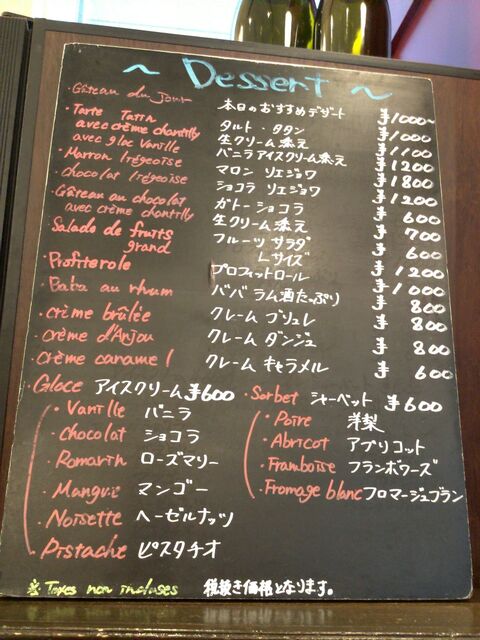 ~ Dessert ~
・Gâteau du Jour 本日のおすすめデザート ¥1000~
・Tarte Tatin タルト・タタン ¥1000
avec crème chantilly 生クリーム添え ¥1100
avec glac Vanille バニラアイスクリーム添え ¥1200
・Marron liégeoise マロン リエジョワ ¥1800
・chocolat liégeoise ショコラ リエジョワ ¥1200
・Gâteau au chocolat ガトーショコラ ¥600
avec crème chantilly 生クリーム添え ¥700
・Salade de fruits フルーツ サラダ ¥600
grand Lサイズ ¥1200
・Profiterole プロフィットロール ¥1000
・Baba au rhum ババ ラム酒たっぷり ¥800
・crème brûlée クレーム ブリュレ ¥800
・crème d'Anjou クレーム ダンジュ ¥800
・crème caramel クレーム キャラメル ¥600
・Glace アイスクリーム ¥600
・Vanille バニラ
・chocolat ショコラ
・Romarin ローズマリー
・Mangue マンゴー
・Noisette ヘーゼルナッツ
・Pistache ピスタチオ
・Sorbet シャーベット ¥600
・Poire 洋梨
・Abricot アプリコット
・Framboise フランボワーズ
・Fromage blanc フロマージュブラン
※ Taxes non incluses 税抜き価格となります。